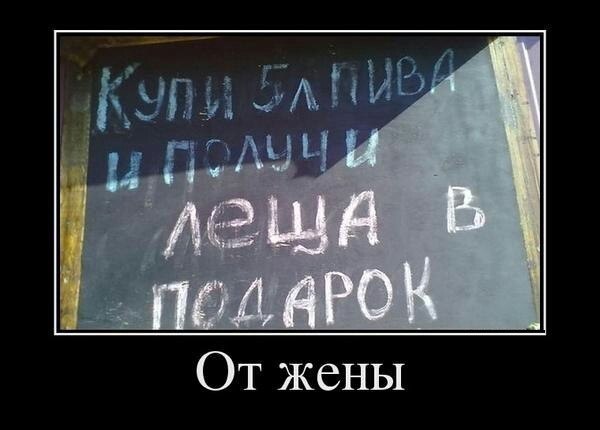 Купи 5л пива
и получи
леща в
подарок
От жены